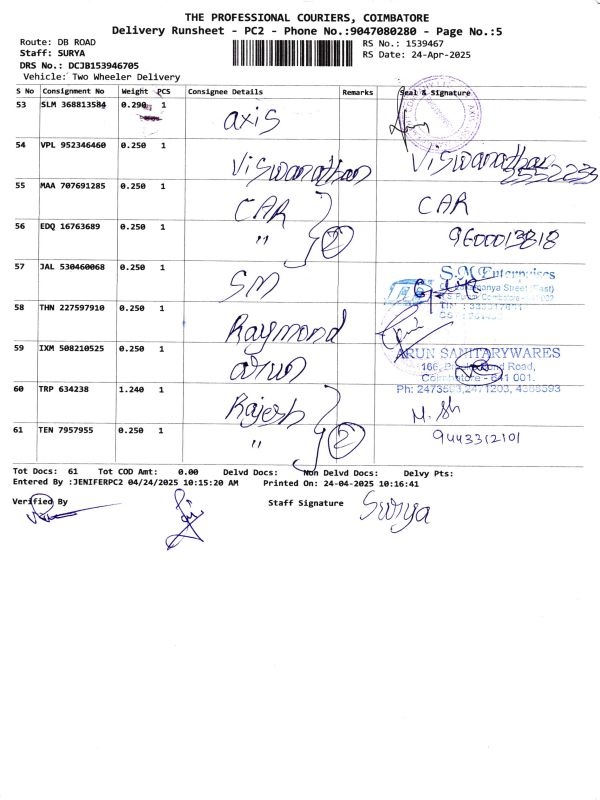 THE PROFESSIONAL COURIERS, COIMBATORE
Delivery Runsheet - PC2 - Phone No.:9047080280 - Page No.:5
Route: DB ROAD
RS No.: 1539467
Staff: SURYA
RS Date: 24-Apr-2025
DRS No.: DCJB153946705
Vehicle: Two Wheeler Delivery
S No Consignment No Weight PCS Consignee Details Remarks Seal & Signature
53 SLM 368813584 0.290 1 axis
54 VPL 952346460 0.250 1 Viswanathan Viswanathan
55 MAA 707691285 0.250 1 CAR CAR
56 EDQ 16763689 0.250 1 " 2 9600013818
57 JAL 530460068 0.250 1 SM S.M Enterprises
58 THN 227597910 0.250 1 Raymond
59 IXM 508210525 0.250 1 arun ARUN SANITARYWARES
Road,
Coimbatore - 641 001.
60 TRP 634238 1.240 1 Rajesh
61 TEN 7957955 0.250 1 " 2 9443312101
Tot Docs: 61 Tot COD Amt: 0.00 Delvd Docs: Non Delvd Docs: Delvy Pts:
Entered By :JENIFERPC2 04/24/2025 10:15:20 AM Printed On: 24-04-2025 10:16:41
Verified By Staff Signature Surya